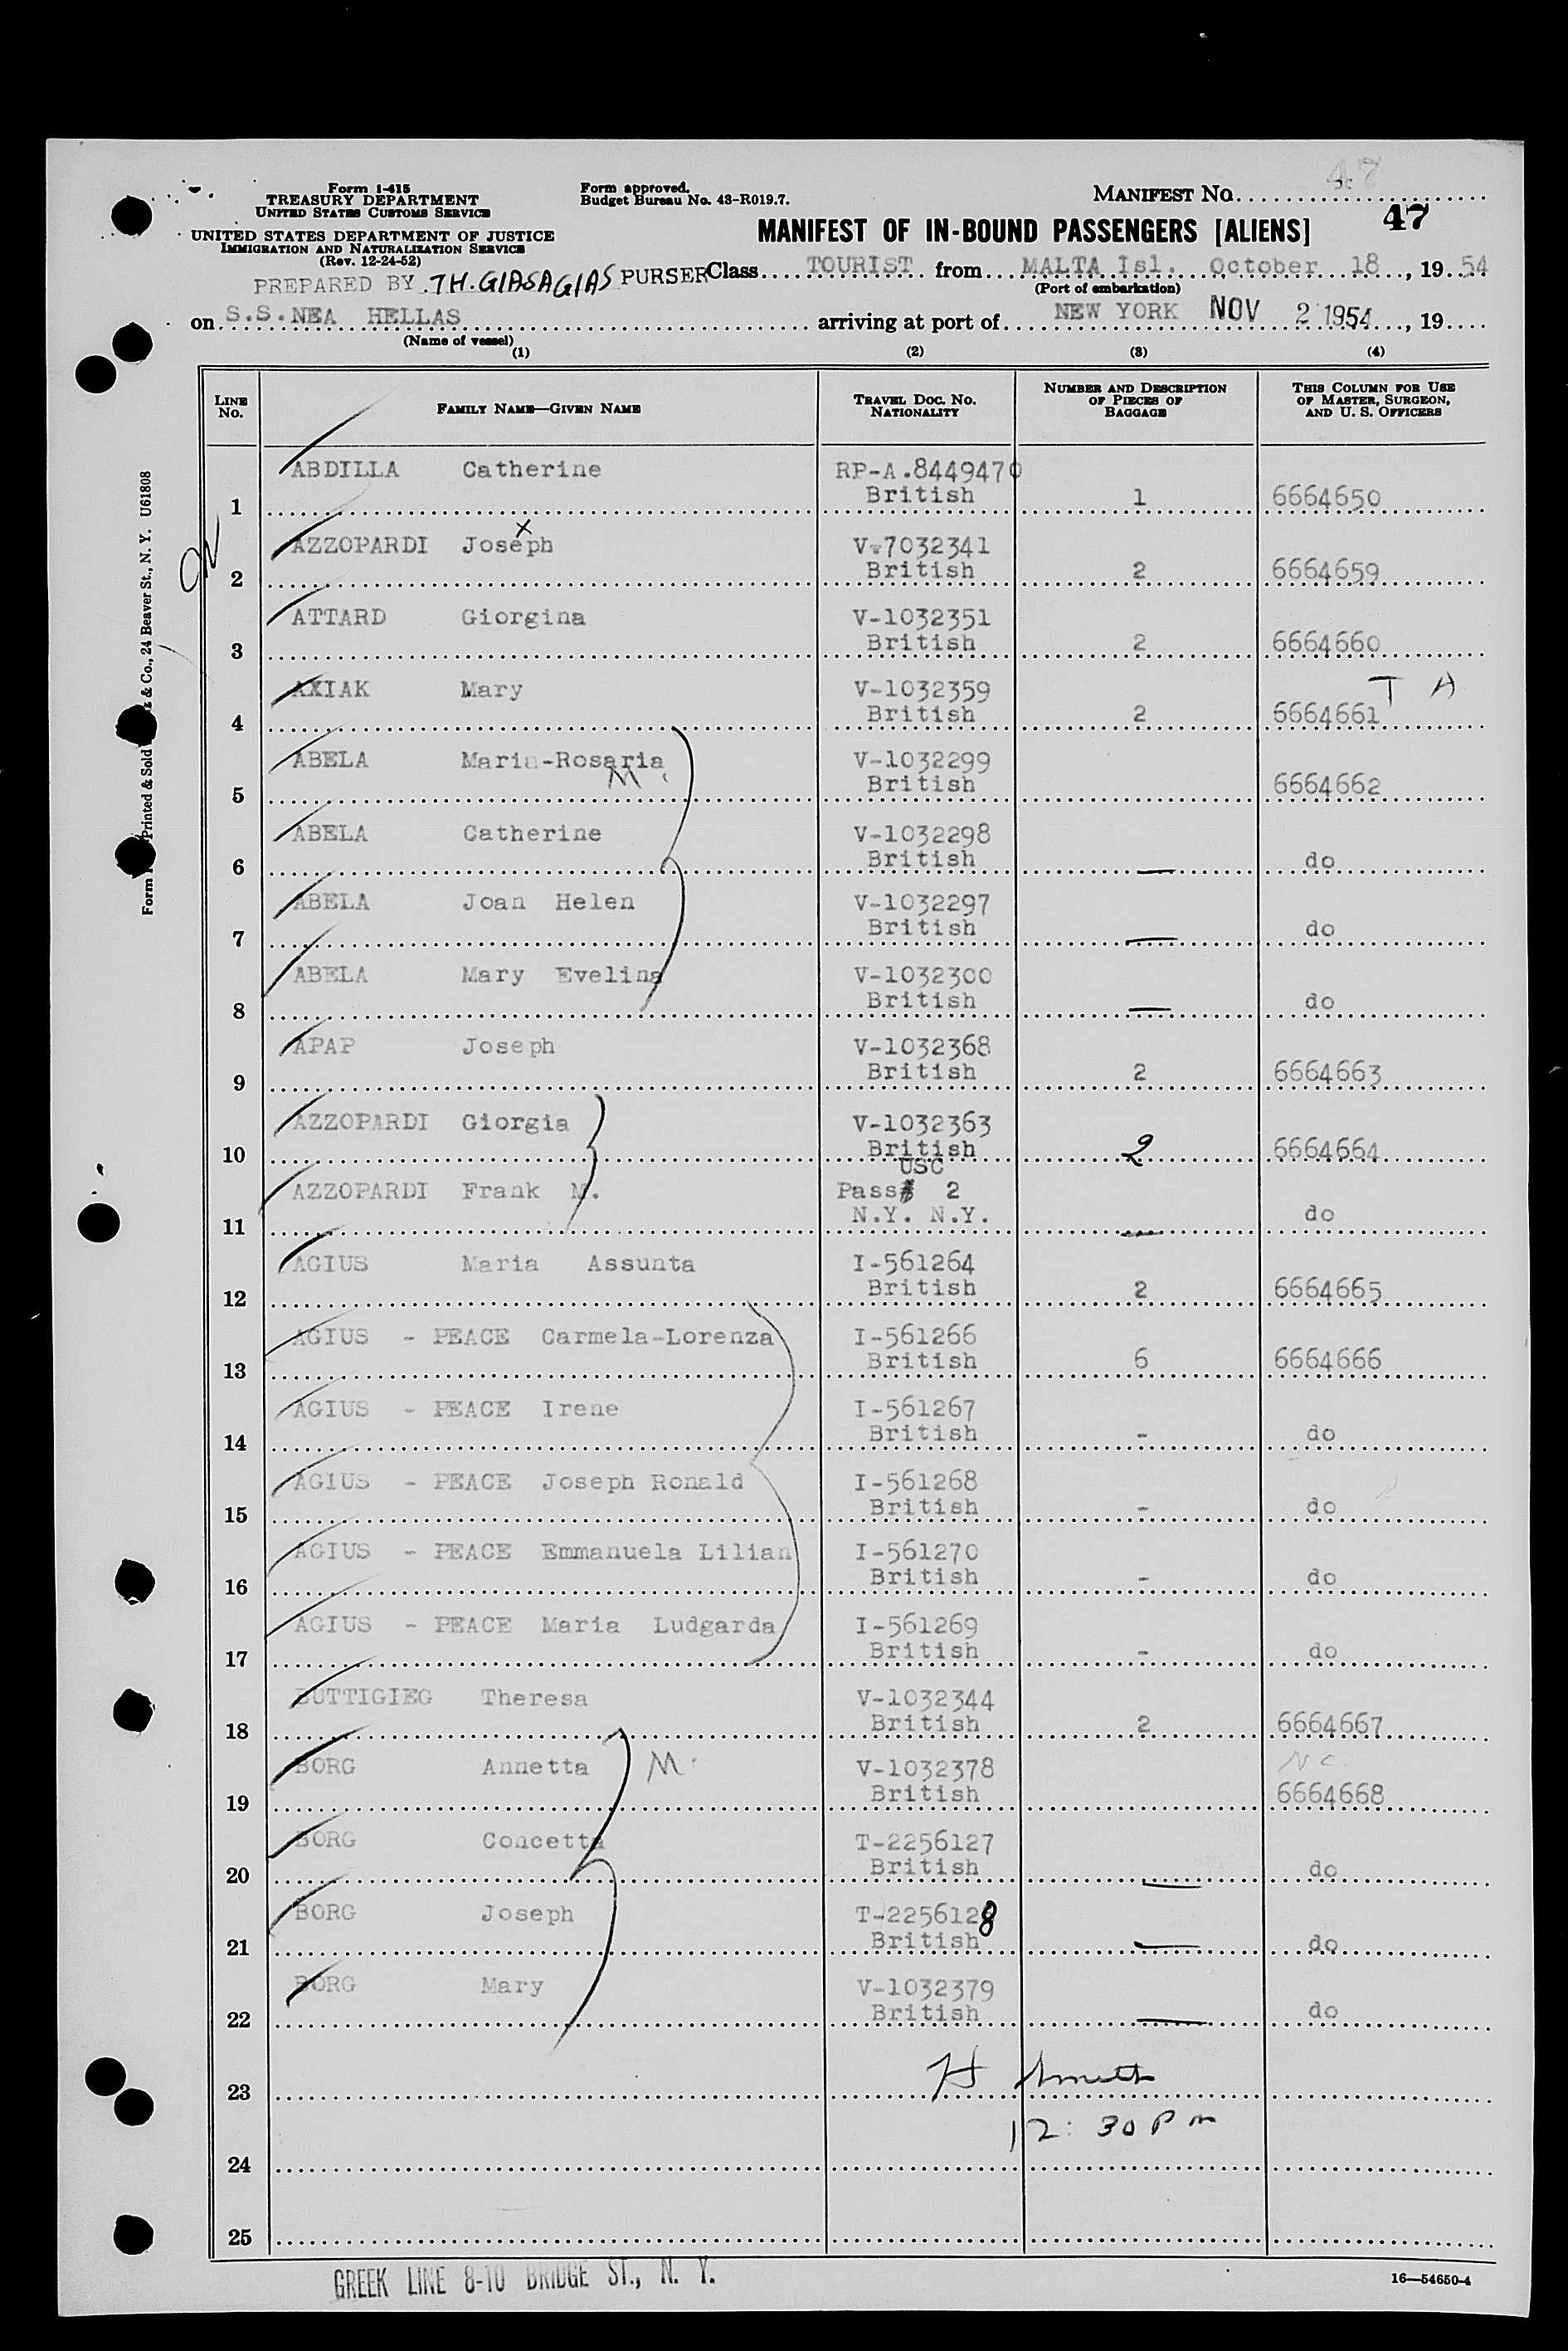 47
Form I-415
TREASURY DEPARTMENT
UNITED STATES CUSTOMS SERVICE
Form approved.
Budget Bureau No. 43-R019.7.
MANIFEST NO. 47
UNITED STATES DEPARTMENT OF JUSTICE
IMMIGRATION AND NATURALIZATION SERVICE
(Rev. 12-24-52)
MANIFEST OF IN-BOUND PASSENGERS [ALIENS]
PREPARED BY TH. GIASAGIAS PURSER Class TOURIST from MALTA Isl. October 18, 19 54
(Port of embarkation)
on S.S. NEA HELLAS arriving at port of NEW YORK NOV 2 1954, 19
(Name of vessel)
(1) (2) (3) (4)
LINE NO. FAMILY NAME—GIVEN NAME TRAVEL DOC. NO. NATIONALITY NUMBER AND DESCRIPTION OF PIECES OF BAGGAGE THIS COLUMN FOR USE OF MASTER, SURGEON, AND U. S. OFFICERS
ABDILLA Catherine RP-A.8449470
1 British 1 6664650
x
AZZOPARDI Joseph V-7032341
2 British 2 6664659
ATTARD Giorgina V-1032351
3 British 2 6664660
AXIAK Mary V-1032359 T A
4 British 2 6664661
ABELA Maria-Rosaria V-1032299
M
5 British 6664662
ABELA Catherine V-1032298
6 British — do
ABELA Joan Helen V-1032297
7 British — do
ABELA Mary Evelina V-1032300
8 British — do
APAP Joseph V-1032368
9 British 2 6664663
AZZOPARDI Giorgia V-1032363
10 British 2 6664664
USC
AZZOPARDI Frank M. Pass# 2
11 N.Y. N.Y. — do
AGIUS Maria Assunta I-561264
12 British 2 6664665
AGIUS - PEACE Carmela-Lorenza I-561266
13 British 6 6664666
AGIUS - PEACE Irene I-561267
14 British - do
AGIUS - PEACE Joseph Ronald I-561268
15 British - do
AGIUS - PEACE Emmanuela Lilian I-561270
16 British - do
AGIUS - PEACE Maria Ludgarda I-561269
17 British - do
BUTTIGIEG Theresa V-1032344
18 British 2 6664667
BORG Annetta M V-1032378 N C
19 British 6664668
BORG Concetta T-2256127
20 British — do
BORG Joseph T-2256128
21 British — do
BORG Mary V-1032379
22 British — do
H Smith
23
12:30 Pm
24
25
GREEK LINE 8-10 BRIDGE ST., N. Y.
16—54650-4
Printed & Sold & Co., 24 Beaver St., N. Y. U61808